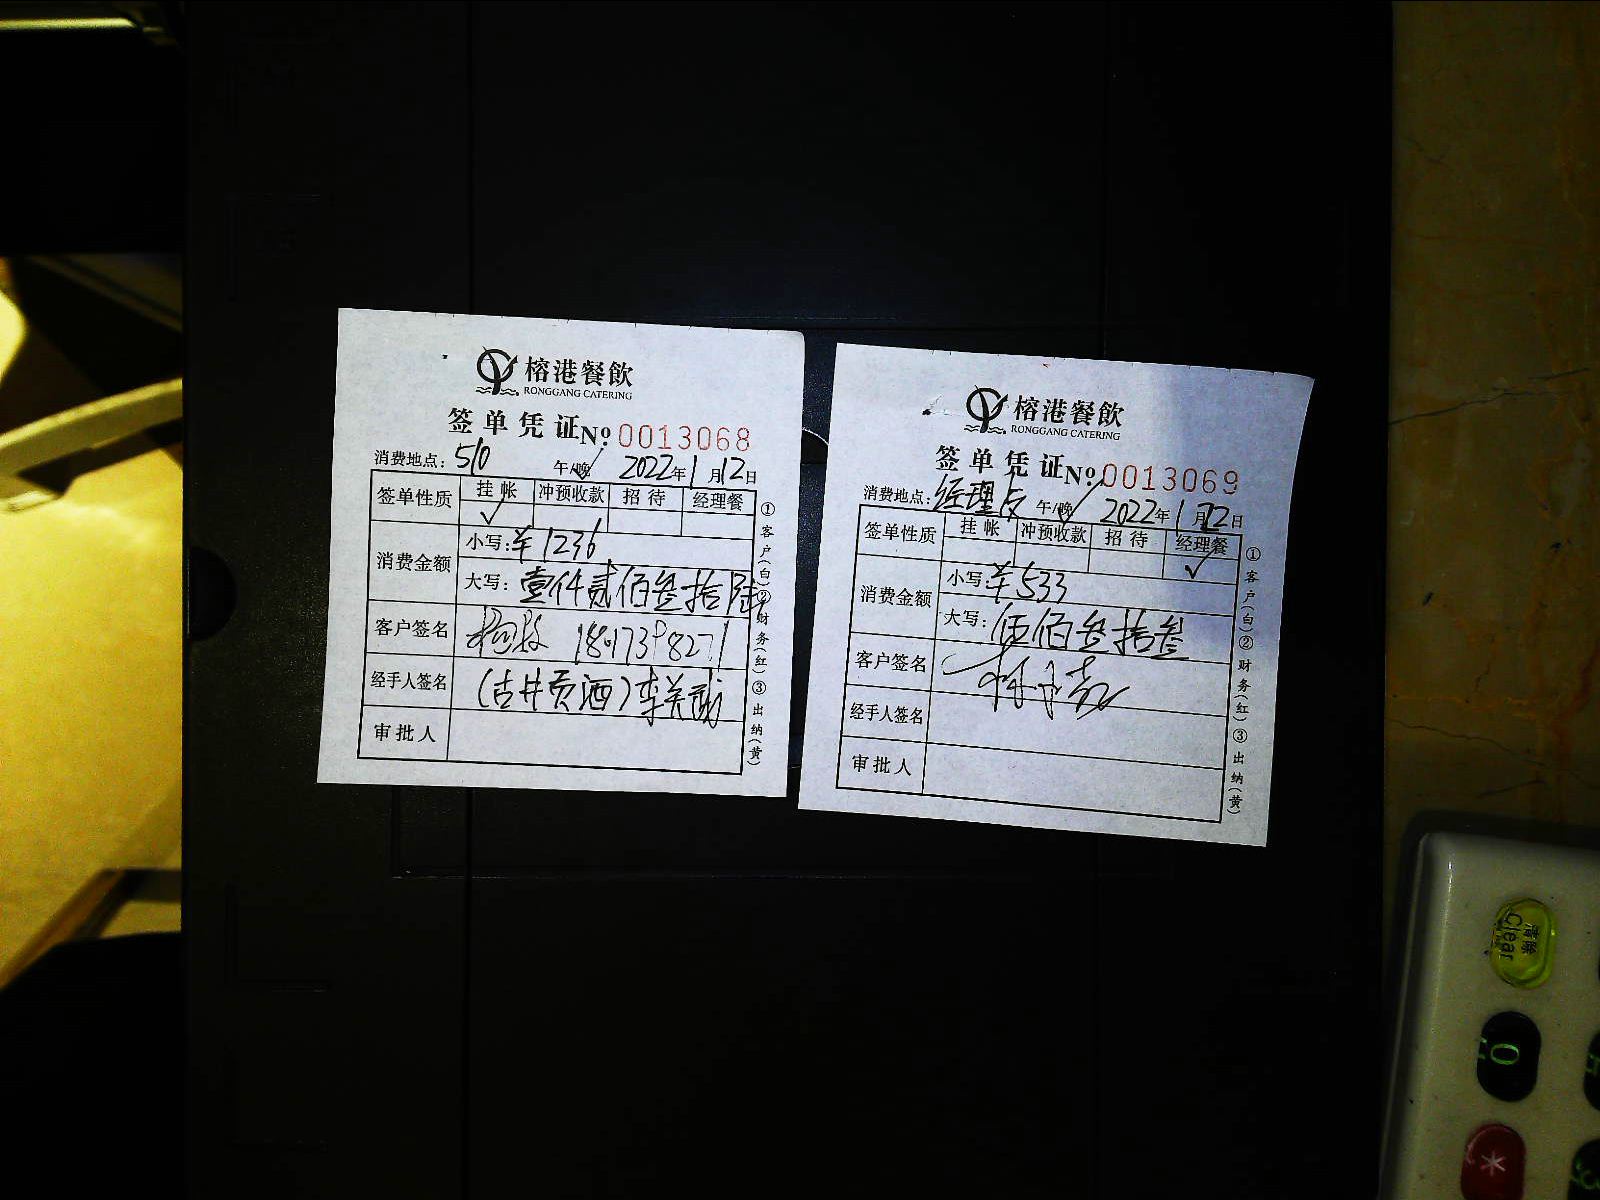 榕港餐飲
RONGGANG CATERING
签单凭证 № 0013068
消费地点：510 午/晚 2022年1月12日
签单性质 挂帐 冲预收款 招待 经理餐
✓
消费金额 小写：¥1236
大写：壹仟贰佰叁拾陆
客户签名
经手人签名 (古井贡酒)李
审批人
①客户(白)②财务(红)③出纳(黄)
榕港餐飲
RONGGANG CATERING
签单凭证 № 0013069
消费地点：经理 午/晚 2022年1月12日
签单性质 挂帐 冲预收款 招待 经理餐
✓
消费金额 小写：¥533
大写：伍佰叁拾叁
客户签名
经手人签名
审批人
①客户(白)②财务(红)③出纳(黄)
清除
Clear
0
*